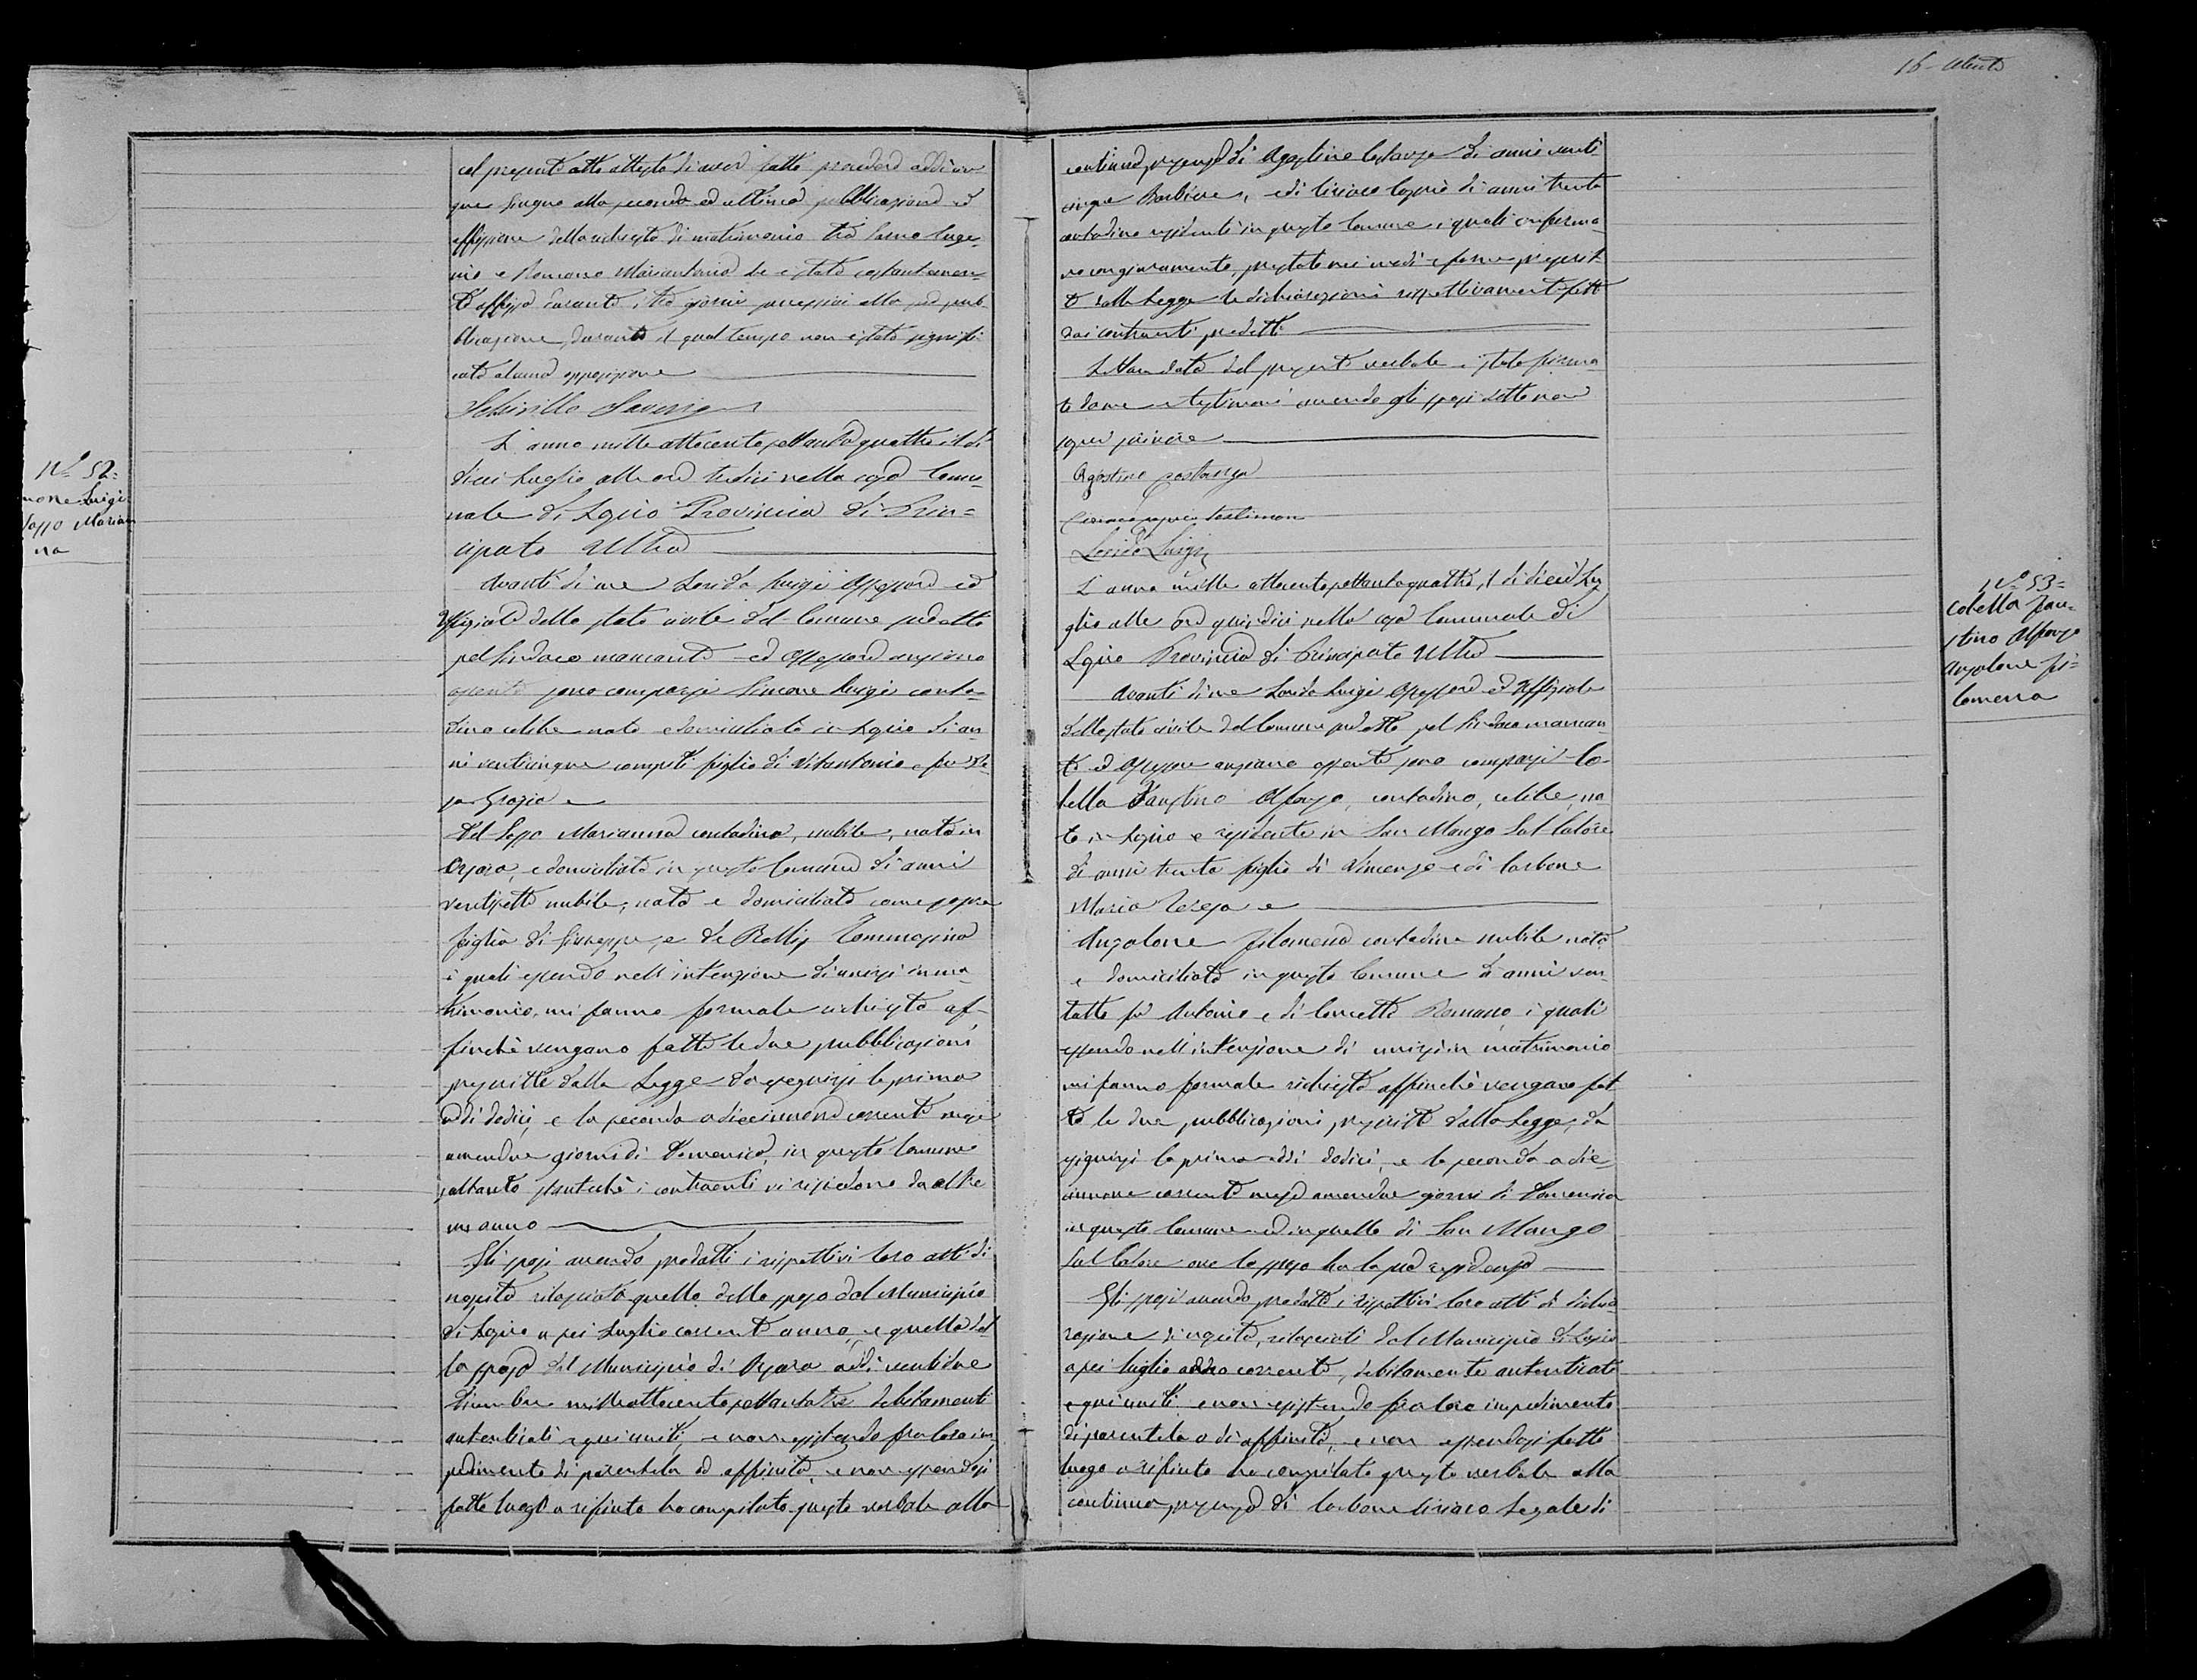 16
col presente atto attesto di aver fatto procedere addì cin
que Giugno alla seconda ed ultima pubblicazione ed
affissione della richiesta di matrimonio tra
e Romano Mariantonia che è stata costantemen
te affissa durante i tre giorni successivi alla sud pub
blicazione, durante il qual tempo non è stata signifi
cata alcuna opposizione
Schirillo Saverio
N° 52=
mone Luigi
Sozzo Marian
na
L'anno mille ottocento settanta quattro il dì
dieci Luglio alle ore tredici nella casa Comu
nale di Lquio Provincia di Prin=
cipato Ultra
Avanti di me Luigi Assessore ed
Uffiziale dello stato civile del Comune pred otto
pel Sindaco mancante ed Assessore anziano
assente sono comparsi Simone Luigi conta
dino celibe nato e domiciliato in Lquio di an
ni venticinque compiti figlio di Vitantonio e fu
Grazia e
Del Sozzo Marianna contadina, nubile, nata in
Orsara, e domiciliata in questo Comune di anni
ventisette nubile, nata e domiciliata come sopra
figlia di Giuseppe, e de Rollis Tommasina
i quali essendo nell'intenzione di unirsi in ma
trimonio, mi fanno formale richiesta af-
finchè vengano fatte le due pubblicazioni
prescritte dalla Legge da eseguirsi la prima
addì dodici, e la seconda a diecinnove corrente mese
amendue giorni di Domenica, in questo Comune
soltanto stantechè i contraenti vi risiedono da oltre
un anno
Gli sposi avendo prodotti i rispettivi loro atti di
nascita rilasciato quello dello sposo dal Municipio
di Lquio a sei Luglio corrente anno, e quello del
la sposa dal Municipio di Orsara addì ventidue
Dicembre milleottocentosettantatre debitamente
autenticati e qui uniti, e non esistendo fra loro im
pedimento di parentela od affinità, e non essendosi
fatto luogo a rifiuto ho compilato questo verbale alla
continua presenza di Agostino Costanza di anni venti
cinque Barbiere, e di Ciriaco Caprio di anni trenta
contadino residenti in questo Comune i quali conferma
no con giuramento, prestato nei modi e forme prescrit
te dalla Legge le dichiarazioni rispettivamente fatte
dai contraenti predetti
Lettura data del presente verbale è stato firma
to da me e testimoni avendo gli sposi detto non
saper scrivere
Agostino Costanza
Ciriaco Caprio testimon
Luigi
N° 53=
Cobella Fau=
stino Alfonso
Anzalone Fi=
lomena
L'anno mille ottocentosettantaquattro, il dì dieci Lu
glio alle ore quindici nella casa Comunale di
Lquio Provincia di Principato Ultra
Avanti di me Luigi Assessore ed Uffiziale
dello stato civile del Comune predetto pel Sindaco mancan
te ed Assessore anziano assente sono comparsi Co
bella Faustino Alfonso, contadino, celibe, na
to in Lquio e residente in San Mango Sul Calore
di anni trenta figlio di Vincenzo e di Carbone
Maria Teresa e
Anzalone Filomena contadina nubile nata
e domiciliata in questo Comune di anni ven
totto fu Antonio e di Concetta Romano, i quali
essendo nell'intenzione di unirsi in matrimonio
mi fanno formale richiesta affinchè vengano fat
te le due pubblicazioni prescritte dalla Legge, da
eseguirsi la prima addì dodici, e la seconda a die
cinnove corrente mese amendue giorni di Domenica
in questo Comune ed in quello di San Mango
Sul Calore ove lo sposo ha la sua residenza
Gli sposi avendo prodotti i rispettivi loro atti di dichia
razione di nascita, rilasciati dal Municipio di Lquio
a sei luglio anno corrente, debitamente autenticati
e qui uniti e non esistendo fra loro impedimento
di parentela o di affinità, e non essendosi fatto
luogo a rifiuto ho compilato questo verbale alla
continua presenza di Carbone Ciriaco Legale di